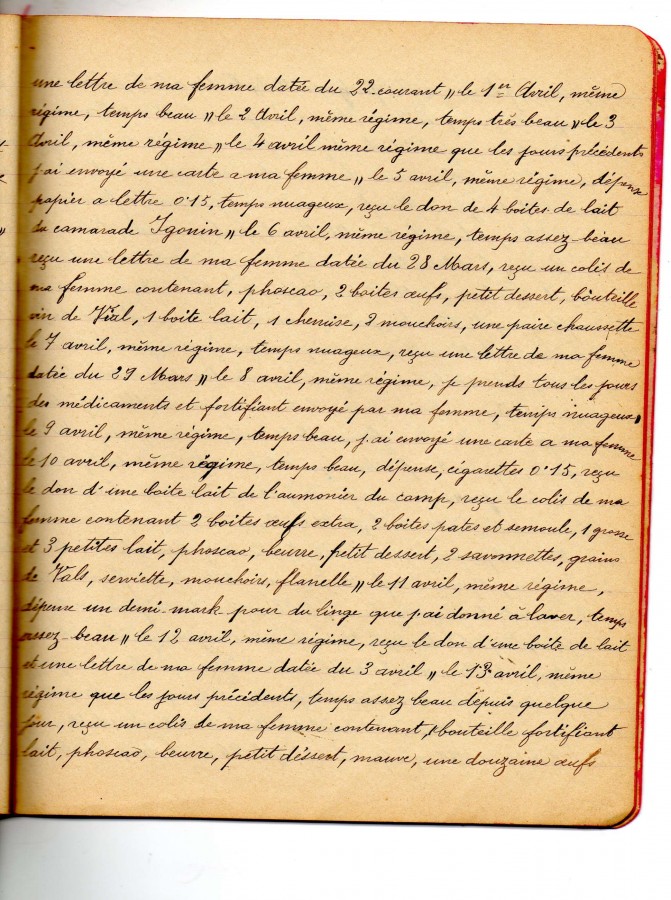 une lettre de ma femme datée du 22 courant „ le 1er Avril, même
régime, temps beau „ le 2 Avril, même régime, temps très beau „ le 3
Avril, même régime „ le 4 avril même régime que les jours précédents
j'ai envoyé une carte a ma femme „ le 5 avril, même régime, dépense
papier a lettre 0'15, temps nuageux, reçu le don de 4 boites de lait
du camarade Igonin „ le 6 avril, même régime, temps assez beau
reçu une lettre de ma femme datée du 28 Mars, reçu un colis de
ma femme contenant, phoscao, 2 boites œufs, petit dessert, bouteille
vin de Vial, 1 boite lait, 1 chemise, 2 mouchoirs, une paire chaussette
le 7 avril, même régime, temps nuageux, reçu une lettre de ma femme
datée du 29 Mars „ le 8 avril, même régime, je prends tous les jours
des médicaments et fortifiant envoyé par ma femme, temps nuageux „
le 9 avril, même régime, temps beau, j.ai envoyé une carte a ma femme
le 10 avril, même régime, temps beau, dépense, cigarettes 0'15, reçu
le don d'une boite lait de l'aumonier du camp, reçu le colis de ma
femme contenant 2 boites œufs extra, 2 boites pates et semoule, 1 grosse
et 3 petites lait, phoscao, beurre, petit dessert, 2 savonnettes, grains
de Vals, serviette, mouchoirs, flanelle „ le 11 avril, même régime,
dépense un demi-mark pour du linge que j'ai donné à laver, temps
assez-beau „ le 12 avril, même régime, reçu le don d'une boite de lait
et une lettre de ma femme datée du 3 avril „ le 13 avril, même
régime que les jours précédents, temps assez beau depuis quelque
jour, reçu un colis de ma femme contenant, 1 bouteille fortifiant
lait, phoscao, beurre, petit déssert, mauve, une douzaine œufs